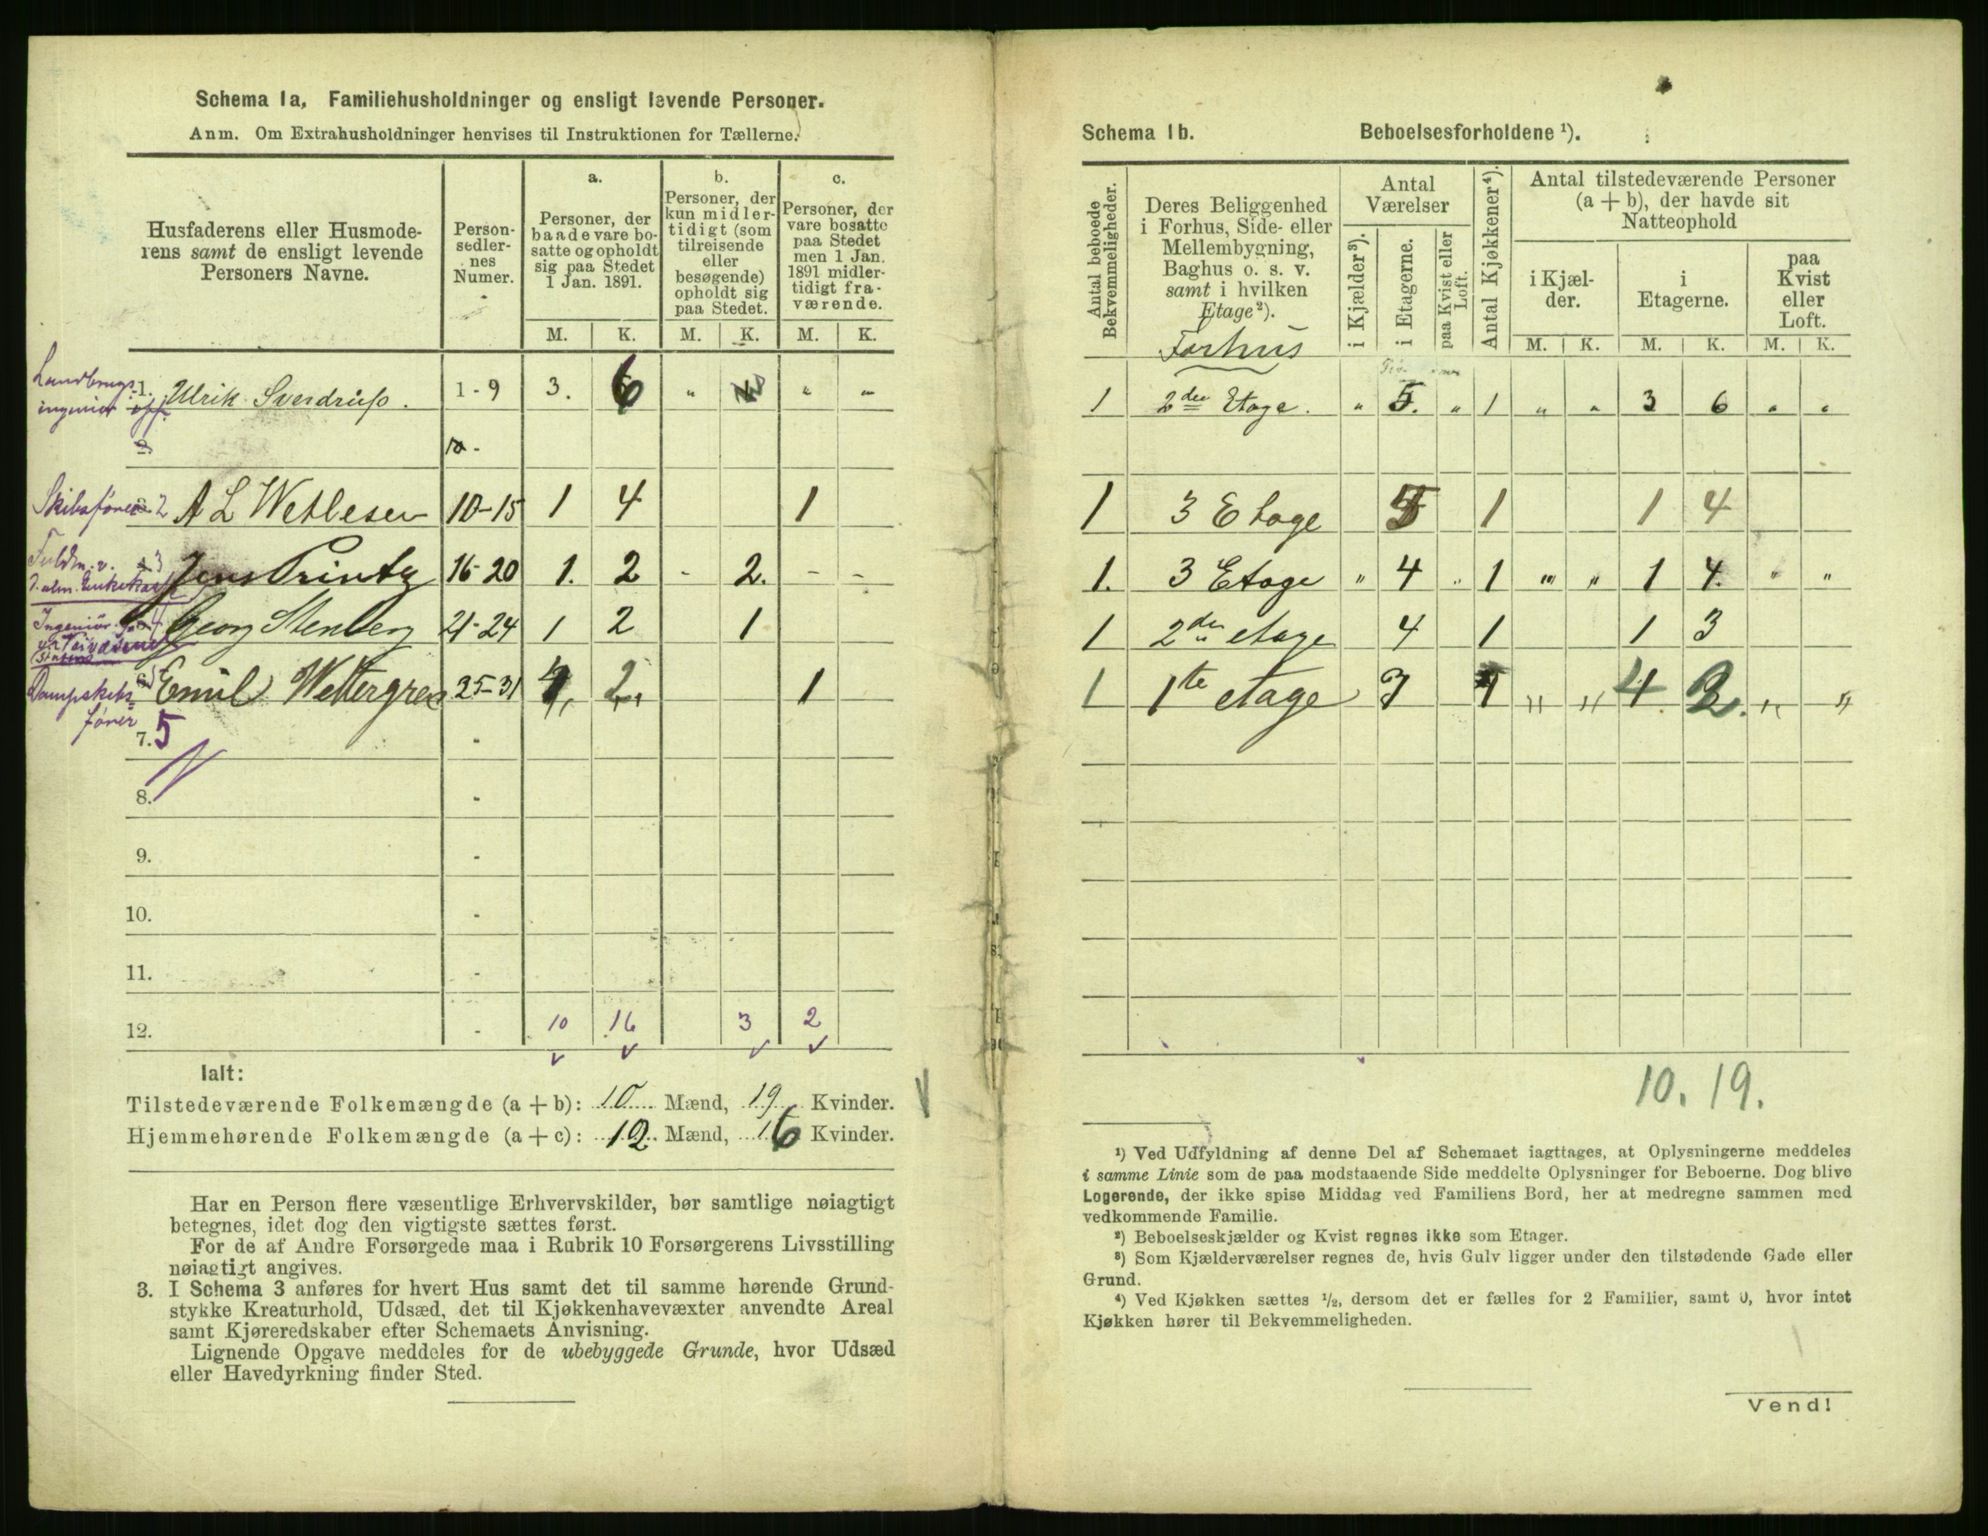 Schema 1a, Familiehusholdninger og ensligt levende Personer.
Anm. Om Extrahusholdninger henvises til Instruktionen for Tællerne.
Husfaderens eller Husmoderens samt de ensligt levende Personers Navne.
Personsedlernes Numer.
a.
Personer, der baade vare bosatte og opholdt sig paa Stedet 1 Jan. 1891.
b.
Personer, der kun midlertidigt (som tilreisende eller besøgende) opholdt sig paa Stedet.
c.
Personer, der vare bosatte paa Stedet men 1 Jan. 1891 midlertidigt fraværende.
M. K. M. K. M. K.
Landbrugsingeniør 1. Ulrik Sverdrup. 1-9 3. 6 " " "
2. 10-
Skibsfører 2 A L Wetlesen 10-15 1 4 1
3 Jens Printz 16-20 1. 2 - 2. - -
Ingeniør 4 Georg Stenberg 21-24 1 2 1
Dampskibsfører Emil Wettergren 25-31 4, 2, 1
7. 5 -
8. -
9. -
10. -
11. -
12. - 10 16 3 2
Ialt:
Tilstedeværende Folkemængde (a + b): 10 Mænd, 19 Kvinder.
Hjemmehørende Folkemængde (a + c): 12 Mænd, 16 Kvinder.
Har en Person flere væsentlige Erhvervskilder, bør samtlige nøiagtigt
betegnes, idet dog den vigtigste sættes først.
For de af Andre Forsørgede maa i Rubrik 10 Forsørgerens Livsstilling
nøiagtigt angives.
3. I Schema 3 anføres for hvert Hus samt det til samme hørende Grund-
stykke Kreaturhold, Udsæd, det til Kjøkkenhavevæxter anvendte Areal
samt Kjøreredskaber efter Schemaets Anvisning.
Lignende Opgave meddeles for de ubebyggede Grunde, hvor Udsæd
eller Havedyrkning finder Sted.
Schema 1b. Beboelsesforholdene ¹).
Antal beboede Bekvemmeligheder.
Deres Beliggenhed i Forhus, Side- eller Mellembygning, Baghus o. s. v. samt i hvilken Etage²).
Antal Værelser
i Kjælder³).
i Etagerne.
paa Kvist eller Loft.
Antal Kjøkkener⁴).
Antal tilstedeværende Personer (a + b), der havde sit Natteophold
i Kjælder.
i Etagerne.
paa Kvist eller Loft.
M. K. M. K. M. K.
Forhus
1 2den Etage. " 5. " 1 " " 3 6 " "
1 3 Etage 5 1 1 4
1. 3 Etage " 4 " 1 " " 1 4. " "
1 2den etage 4 1 1 3
1 1te etage 7 1 " " 4 2. " "
10. 19.
¹) Ved Udfyldning af denne Del af Schemaet iagttages, at Oplysningerne meddeles
i samme Linie som de paa modstaaende Side meddelte Oplysninger for Beboerne. Dog blive
Logerende, der ikke spise Middag ved Familiens Bord, her at medregne sammen med
vedkommende Familie.
²) Beboelseskjælder og Kvist regnes ikke som Etager.
³) Som Kjælderværelser regnes de, hvis Gulv ligger under den tilstødende Gade eller
Grund.
⁴) Ved Kjøkken sættes ½, dersom det er fælles for 2 Familier, samt 0, hvor intet
Kjøkken hører til Bekvemmeligheden.
Vend!